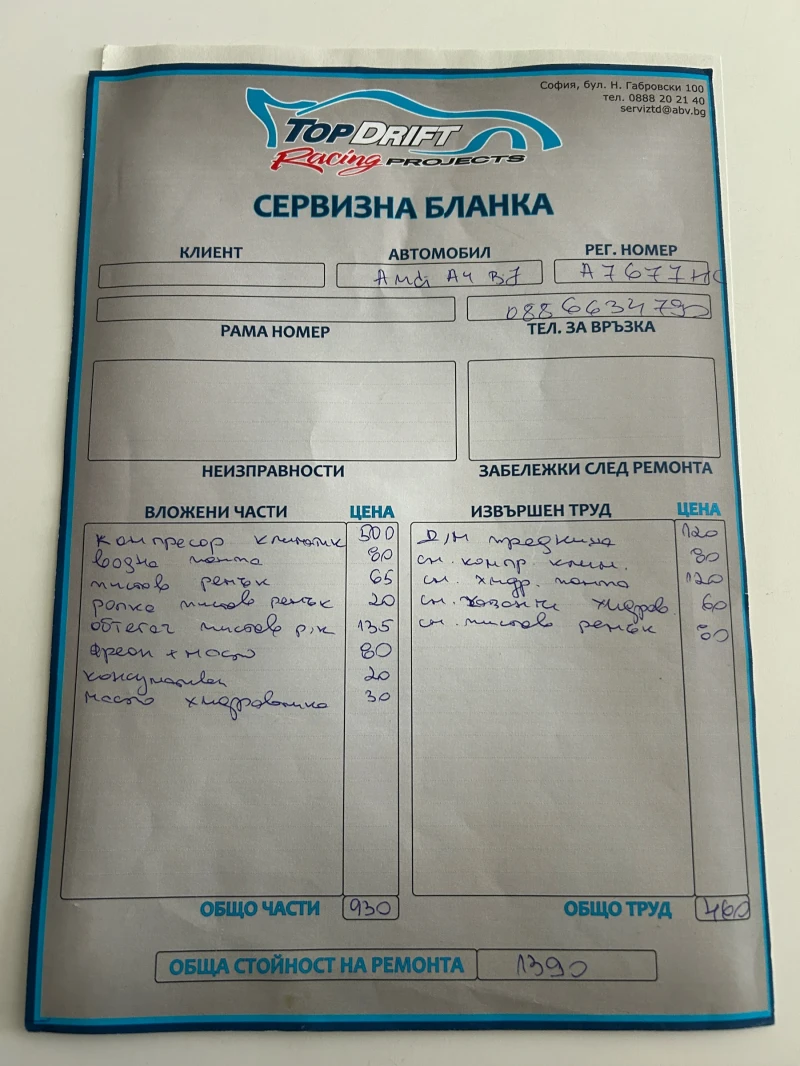 София, бул. Н. Габровски 100
тел. 0888 20 21 40
serviztd@abv.bg
TOPDRIFT
Racing PROJECTS
СЕРВИЗНА БЛАНКА
КЛИЕНТ АВТОМОБИЛ РЕГ. НОМЕР
Audi A4 B7 A7677HC
0886634790
РАМА НОМЕР ТЕЛ. ЗА ВРЪЗКА
НЕИЗПРАВНОСТИ ЗАБЕЛЕЖКИ СЛЕД РЕМОНТА
ВЛОЖЕНИ ЧАСТИ ЦЕНА ИЗВЪРШЕН ТРУД ЦЕНА
компресор климатик 500 Д/М предница 120
водна помпа 80 см. компр. клим. 80
пистов ремък 65 см. хидр. помпа 120
ролка пистов ремък 20 см. казанче хидрав. 60
обтегач пистов р/к 135 см. пистов ремък 80
фреон + масло 80
консумативи 20
масло хидравлика 30
ОБЩО ЧАСТИ 930 ОБЩО ТРУД 460
ОБЩА СТОЙНОСТ НА РЕМОНТА 1390